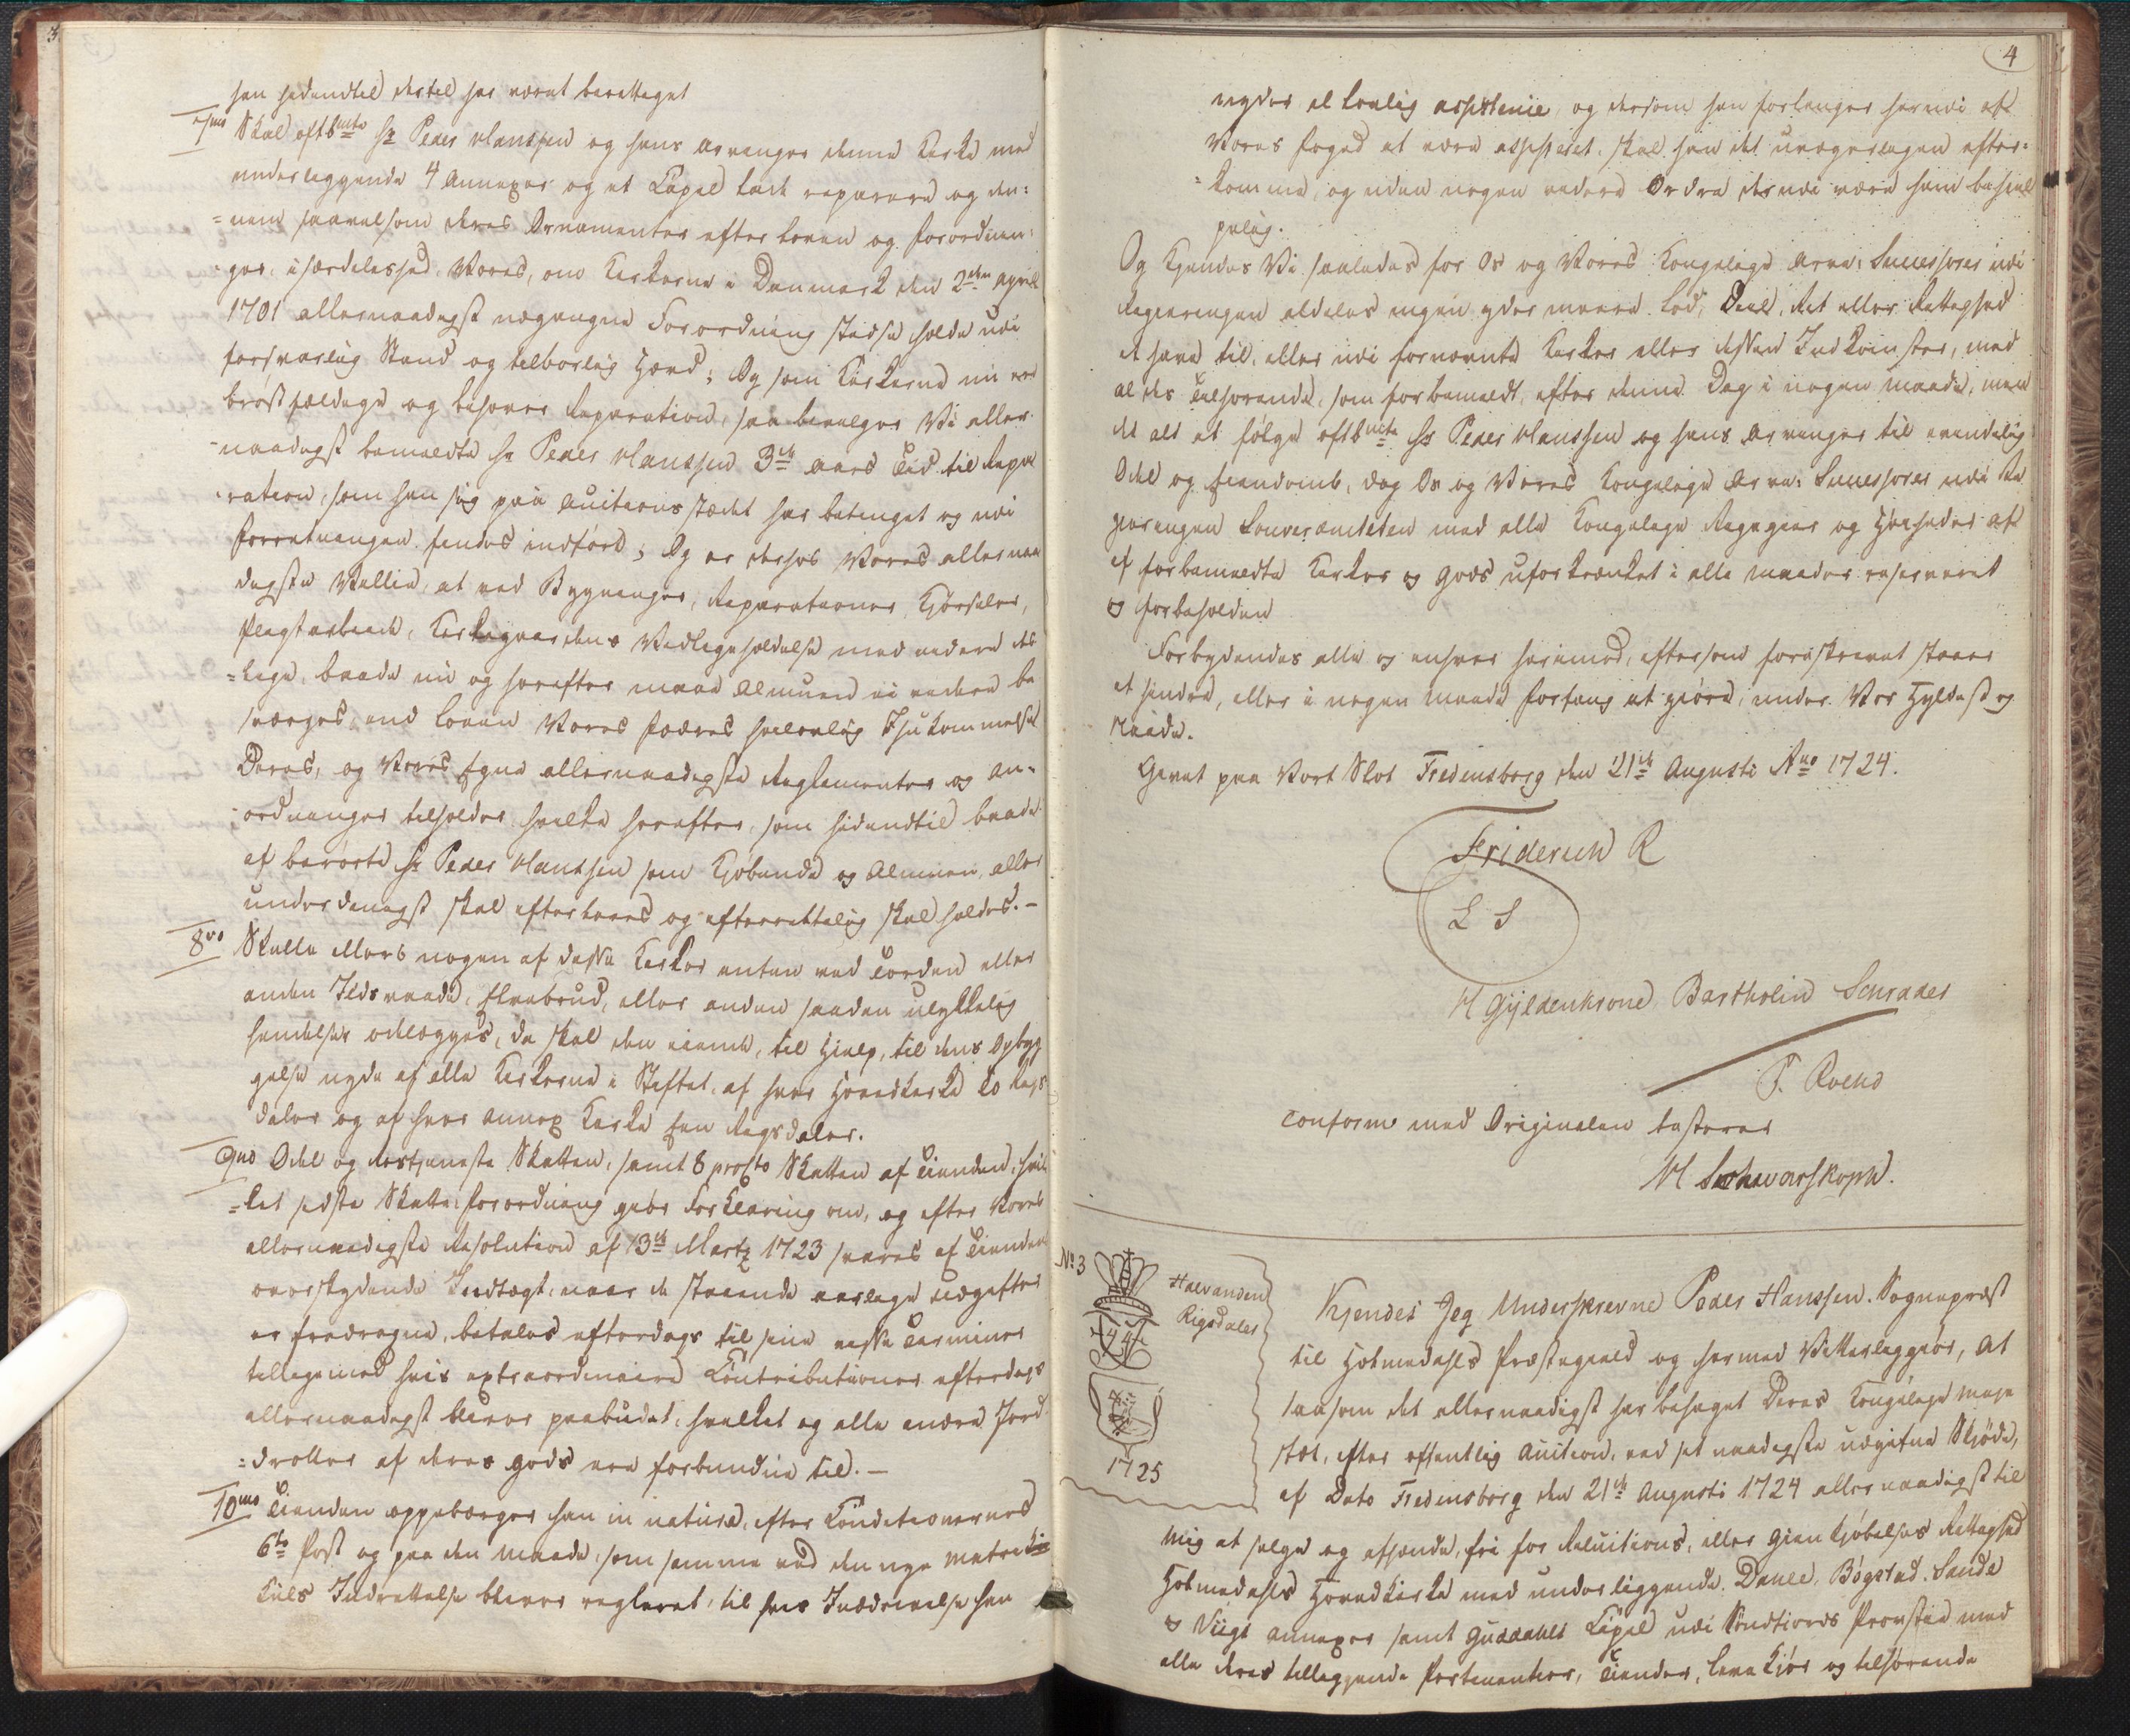 3
han hidindtil dertil har været berettiget
7mo Skal oftbmte Hr Peder Hanssen og hans Arvinger denne Kirke med
underliggende 4 Annexer og et Capel lade reparere og den:
=nem saavelsom deres Ornamenter efter Loven og Forordnin:
ger, i særdeleshed Vores, om Kirkerne i Danmark den 2den April
1701 allernaadigst udgangne Forordning stedse holde udi
forsvarlig Stand og tilbørlig Hævd; Og som Kirkerne nu ere
brøstfældige og behøver Reparation, saa bevilger Vi aller-
-naadigst bemeldte Hr Peder Hanssen 3de Aars Tid til Repa
-ration, som han sig paa Auctions stædet har betinget og udi
Forretningen findes indført; Og er derhos Vores allernaa
digste Villie, at ved Bygninger, Reparationer, Kjørseler,
Pligtarbeide, Kirkegaardens Vedligeholdelse med videre des
=lige, baade nu og herefter maae Almuen ei videre be
sværges, end Loven Vores Faders høilovlig Ihukommelse
Deres, og Vores Egne allernaadigste Reglementer og An-
-ordninger tilholder hvilke herefter, som hidindtil baade
af berørte Hr Peder Hanssen som Kjøbende og Almuen, aller
underdanigst skal efterleves og efterrettelig skal holdes.-
8vo Skulle ellers nogen af disse Kirker enten ved Torden eller
anden Ilds vaade, Skaebrud, eller anden saadan ulykkelig
hendelser ødelægges, da skal den eiende, til Hjelp, til dens Opbyg
gelse nyde af alle Kirkerne i Stiftet, af hver Hovedkirke to Rigs
daler og af hver Annex Kirke Een Rigsdaler.
9no Odel og Rostjeneste Skatten, samt 8 procto Skatten af Tienden, hvil
=ket sidste Skatte Forordning giør Forklaring om, og efter Vores
allernaadigste Resolution af 13de Martz 1723 svares af Tienden
overskydende Indtægt, naar de staaende aarlige Udgifter
er fradragne, betales efterdags til sine visse Terminer
tilligemed hvis extraordinaire Contributioner efterdags
allernaadigst bliver paabudet, hvilket og alle andre Jord
=drotter af deres gods ere forbundne til.-
10mo Tienden oppebærger han in natura, efter Conditionernes
6te Post og paa den Maade, som samme ved den nye Matri
kuls Indrettelse bliver regleret, til hvis Inddrivelse han
4
nyder al lovlig assistence og dersom han forlanger herudi af
Vores Foged at være assisteret, skal han det uvægerligen efter=
=komme, og uden nogen videre Ordre derudi være ham behielp
pelig.
Og Kjendes Vi saaledes for Os og Vores Kongelige Arve: Successorer udi
Regieringen aldeles ingen yder meere Lod, Deel, Ret eller Rettighed
at have til, eller udi fornevnte Kirker eller dessen Indkomster, med
al des Tilhørende, som forbemeldt, efter denne Dag i nogen maade, men
det alt at følge oftbmte Hr Peder Hanssen og hans Arvinger til evindelig
Odel og Eiendomb, dog Os og Vores Kongelige Arve: Successorer udi Re
gieringen Souverainiteten med alle Kongelige Regalier og Høiheder af
af forbemeldte Kirker og Gods uforkrænket i alle Maader reserveret
og forbeholden
Forbydendes alle og enhver herimod, eftersom foreskrevet staaer
at hindre, eller i nogen maade forfang at giøre, under Vor Hyldest og
Naade.
Givet paa Vort Slot Fredensborg den 21de Augusti Ano 1724.
Friderich R
L S
H Gyldenkrone Bartholin Schrader
T. Roehs
Conform med Originalen testerer
H Schwarskoph.
No 3
Halvanden
Rigsdaler
1725
Kjendes Jeg Underskrevne Peder Hanssen. Sognepræst
til Holmedahls Præstegield og hermed Vitterliggiør, At
saasom det allernaadigst har behaget Deres Kongelige Maje
stæt, efter offentlig Auction, ved sit naadigste udgifne Skjøde,
af Dato Fredensborg den 21de Augusti 1724 allernaadigst til
mig at selge og afhænde, fri for Reluitions, eller Gien Kjøbelses Rettighed
Holmedahls Hovedkirke med underliggende. Dahle, Bøgstad. Sande
og Viigs Annexer samt Guddahls Capel udi Sundfiords Provstie med
alle deres tilliggende Pertinentier, Tiender, Lene Kiør og tilhørende